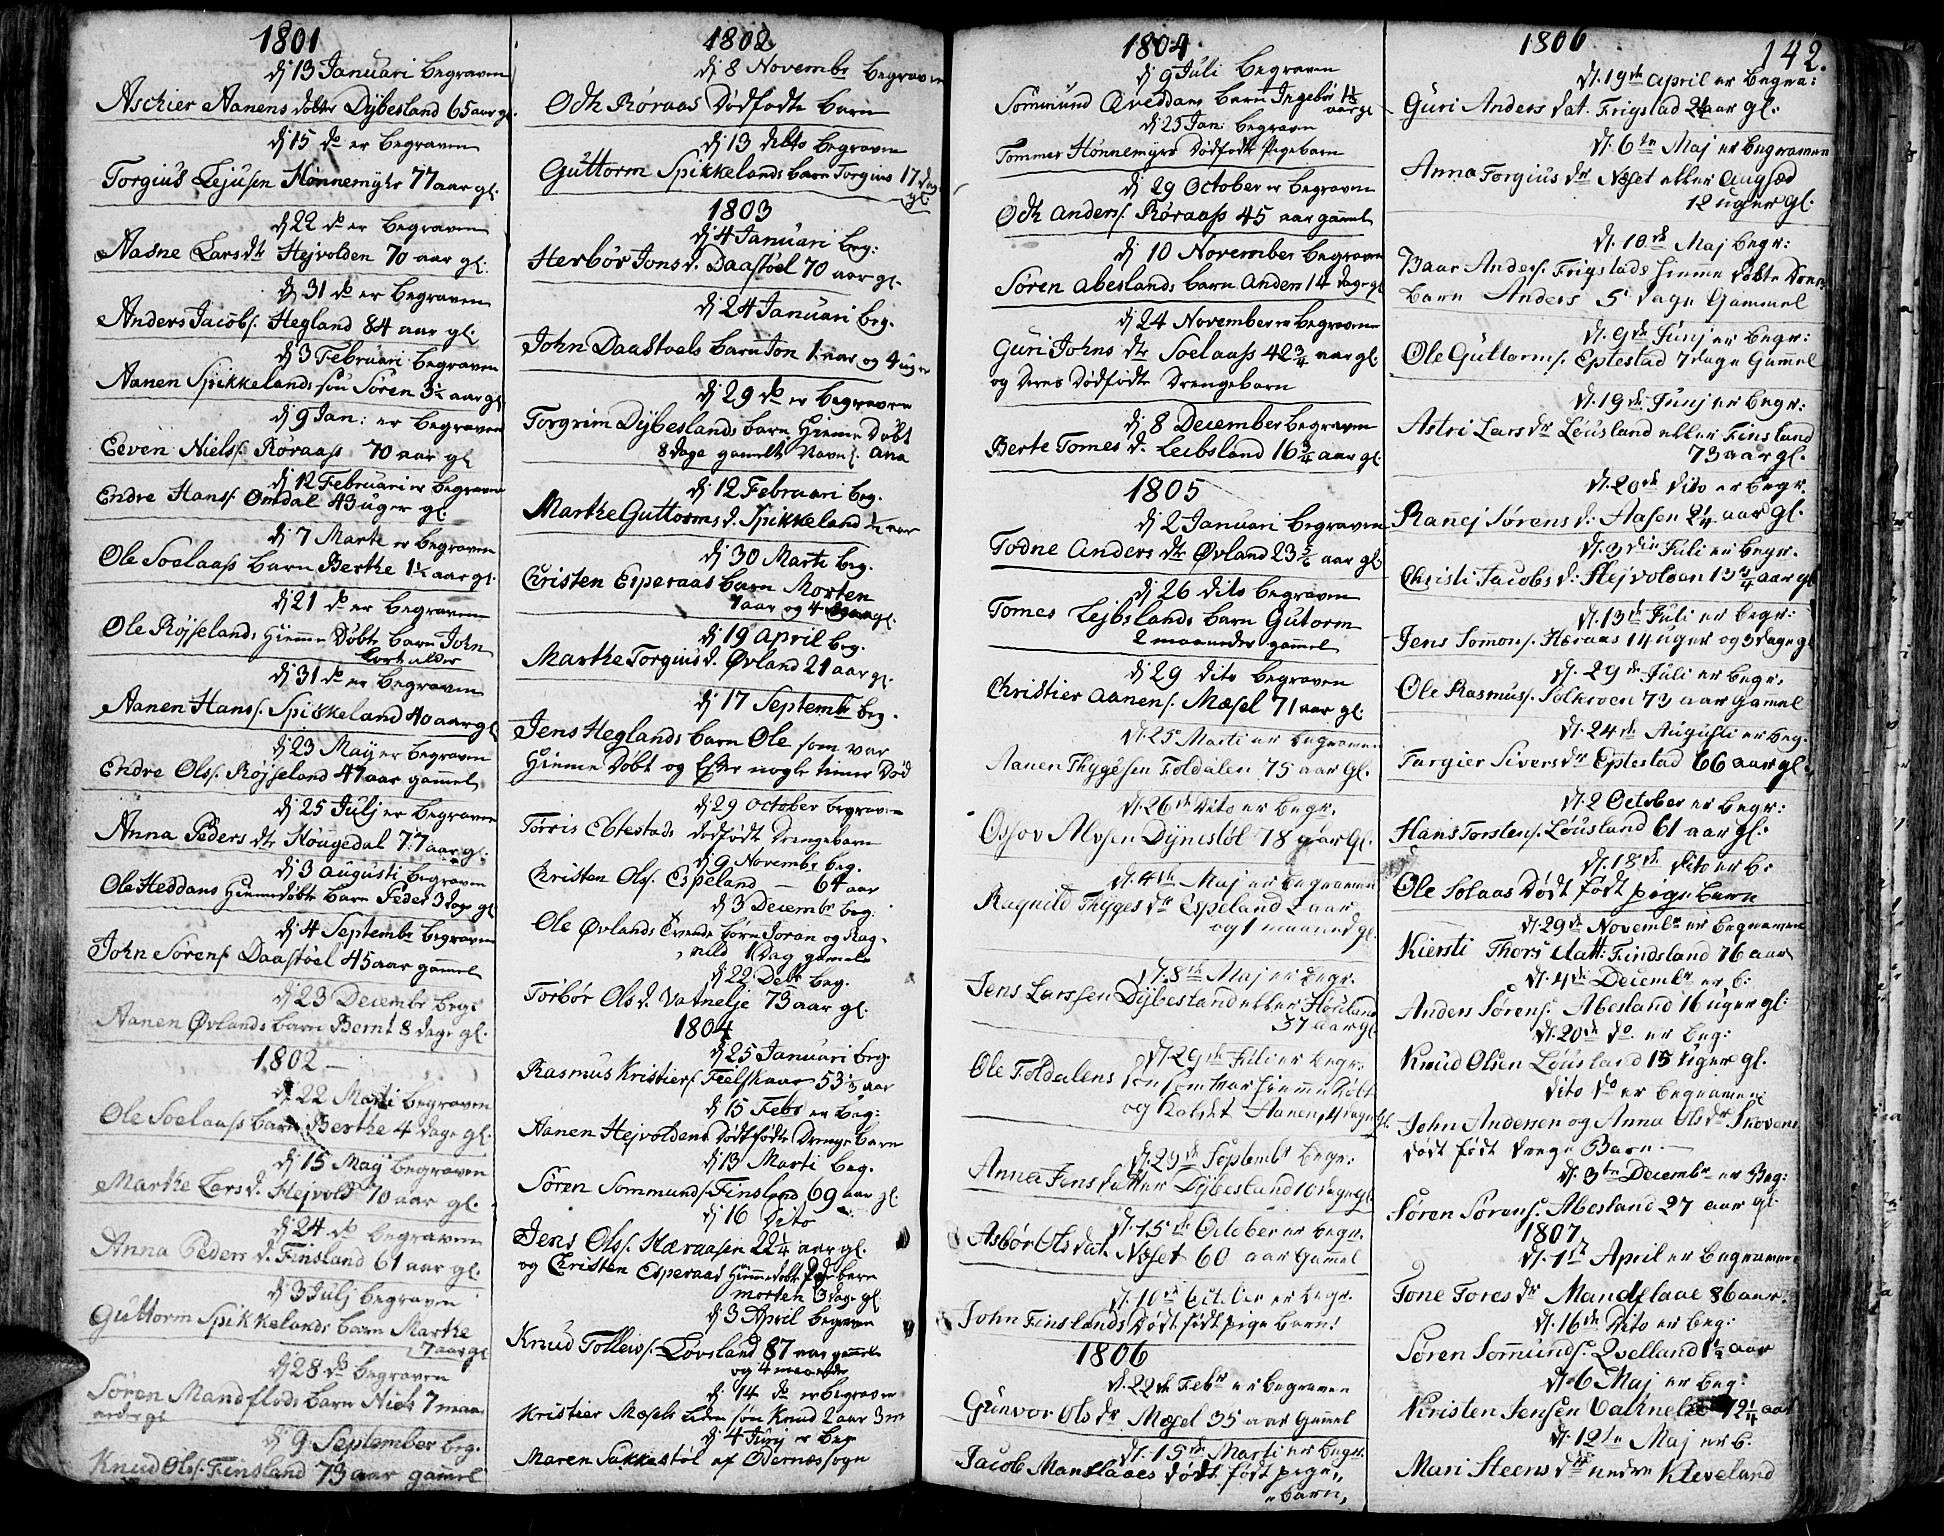 1801
dj 13 Januari begraven
Aschier Aanens dobter Dÿbesland 65 aar gl.
dj 15 do er begraven
Torgius Lejusen Hönnemÿhr 77 aar gl.
dj 22 do er begraven
Aasne Lars dtr Hejvolden 70 aar gl.
dj 31 do er begraven
Anders Jacobs. Hegland 84 aar gl.
dj 3 Februari begraven
Aanen Spikkelands søn Søren 3½ aar gl
dj 9 Jan: er begraven
Eeven Niels. Røraass 70 aar gl
dj 12 Februari er begraven
Endre Hans. Omdal 43 uger gl
dj 7 Marti er begraven
Ole Soelaass barn Berthe 1¼ aar gl.
dj 21 do er begraven
Ole Røÿselands Hiemme Døbte barn John
kort alder
dj 31 do er begraven
Aanen Hans. Spikkeland 40 aar gl
dj 23 Maÿ er begraven
Endre Ols. Røÿseland 47 aar gammel
dj 25 Julj er begraven
Anna Peders dtr Hougedal 77 aar gl.
dj 3 Augusti begraven
Ole Heddans Hiemmedøbte barn Peder 3 dage gl
dj 4 Septembr begraven
John Sørens. Daastøel 45 aar gammel
dj 23 Decembr begr
Aanen Øvlands barn Bernt 8 dage gl.
1802
dj 22 Marti begraven
Ole Soelaass barn Berthe 4 dage gl.
dj 15 Maÿ begraven
Marthe Lars d. Hejvold 70 aar gl.
dj 24 do begraven
Anna Peders d. Finsland 61 aar gl.
dj 3 Julj begraven
Guttorm Spikkelands barn Marthe
7 aar gl
dj 28 do begraven
Søren Mandflods barn Niels 7 maa
neder gl
dj 9 September beg.
Knud Ols. Finsland 73 aar gammel
1802
dj 8 Novembr begraven
Odh Røraas Dødfødte barn
dj 13 dito begraven
Guttorm Spikkelands barn Torgius 17 dage
gl.
1803
dj 4 Januari beg:
Herbør Jons d. Daastøel 70 aar gl.
dj 24 Januari beg.
John Daastoels barn Jon 1 aar og 4 uger
dj 29 do er begraven
Torgrim Dÿbeslands barn Hieme Døbt
8 dage gamelt Navnl. Ana
dj 12 Februari beg.
Marthe Guttorms d. Spikkeland ½ aar
dj 30 Marti beg.
Christen Esperaas barn Morten
7 aar og 4 gl.
dj 19 April beg.
Marthe Torgius d. Øvland 21 aar gl.
dj 17 Septembr beg.
Jens Heglands barn Ole som var
Hieme Døbt og Efter nogle timer Død
dj 29 October begraven
Torris Ebtestads dødfødt Drengebarn
dj 9 Novembr beg.
Christen Ols. Espeland 64 aar
dj 3 Decembr beg.
Ole Øvlands børn Joran og Rag-
nild 1 Dag gamele
dj 22 beg.
Torbør Ols d. Vatnelje 73 aar gl.
1804
dj 25 Januari beg.
Rasmus Kristiers. Fielskaar 53⅓ aar
dj 15 Febr er beg:
Aanen Hejvoldens Dødfødte Drenge barn
dj 13 Marti beg.
Søren Sommunds. Finsland 69 aar gl.
dj 16 Dito
Jens Ols. Hæraasen 22¼ aar gl.
og Christen Esperaas Hiemmedøbte barn
morten 3 dage gl.
dj 3 April begraven
Knud Tollevs. Løvsland 87 aar gammel
og 4 maaneder
dj 14 do er begraven
Kristier Mæsels liden søn Knud 2 aar 3 m
dj 4 Junj er beg
Maren Sakkestøl af Odernæs sogn
1804.
dj 9 Juli begraven
Sommund Qveddans barn Ingebør 1½
aar gl
dj 25 Jan: begraven
Tommer Hønnemÿrs Dødfødte Pigebarn
dj 29 October er begraven
Odh Anders. Røraass 45 aar gammel
dj 10 November begraven
Søren Abeslands barn Anders 14 dage gl
dj 24 November er begraven
Guri Johns dtr Soelaass 42¾ aar gl.
og Deres Dødfødte Drengebarn
dj 8 December begraven
Berte Tomes d. Leibsland 16¾ aar gl.
1805
dj 2 Januari begraven
Todne Anders dtr Øvland 23 aar gl
dj 26 dito begraven
Tomes Lejbslands barn Gutorm
2 maaneder gammel
dj 29 dito begraven
Christier Aanens. Mæsel 71 aar gl.
d. 25 Marti er begraven
Aanen Thÿgesen Foldalen 75 aar Gl.
d. 26de dito er begr.
Ossov Alvsen Dÿnestøl 78 aar Gl.
d. 4de Maj er begraven
Ragnild Thÿges dr Espeland 2 aar
og 1 maaned gl.
d. 8de Maj er begr.
Jens Larssen Dÿbesland eller Høiland
37 aar gl.
d. 29de Juli er begr.
Ole Foldalens søn som var hiemmedøbt
og Kaldet Aanen, 14 dage gl
d. 29de Septembr begr:
Anna Jens datter Dÿbesland 10 dage gl
d. 15de October er begr.
Asbør Ols dat. Næset 60 aar Gammel
d. October er begr.
John Finslands Dødtfødt pige barn!
1806
d. 22de Febr er begraven
Gunvor Ols dr Mæsel 35 aar Gammel
d. 15de Marti er begr.
Jacob Manflaaes dødt født pige
barn,
1806
142.
d. 19de April er begra:
Guri Anders dat. Frigstad 24 aar gl.
d. 6te Maj er begraven
Anna Torgius dr Næset eller Augsæd
12 uger gl.
d. 10de Maj begr:
Baar Anders. Frigstads hieme døbte Drenge
barn Anders 5 dage Gammel
d. 9de Junj er begr:
Ole Guttorms. Eptestad 7 dage Gammel
d. 19de Junj er begr:
Astri Lars dr Løusland eller Finsland
73 aar gl.
d. 20de dito er begr.
Ranej Sørens d: Aasen 2¼ aar gl.
d. 3die Juli er begr.
Christi Jacobs d: Hejvolden 13¾ aar gl
d. 13de Juli er begr:
Jens Somons. Hæraas 14 uger og 3 dage gl
d. 29de Juli er begr.
Ole Rasmus. Solkroen 73 aar gammel
d. 24de Augusti er beg.
Targier Sivers dr Eptestad 66 aar gl.
d. 2 October er begr:
Hans Torstens. Løusland 61 aar gl.
d. 18de dito er b:
Ole Solaas Dødt født pige barn
d. 29de Novembr er begraven
Kiersti Thors datt. Findsland 76 aar
d. 4de Decembr er b:
Anders Sørens. Abesland 16 uger gl.
d. 20de do. er beg:
Knud Olsen Løusland 15 uger gl.
dito do er begraven
John Andersen og Anna Ols dr Skovens
dødt født drenge Barn
d. 3te Decembr er Beg:
Søren Sørens. Abesland 27 aar gl
1807.
d. 1te April er begraven
Tone Tores dr Mandflaae 86 aar.
d. 16de Dito er beg:
Søren Somunds. Qvelland 1½ aar
d. 6 Maj er beg:
Kristen Jensen Vathnelie 72¼ aar
d. 12te Maj er b.
Mari Steens dr nedre Kleveland